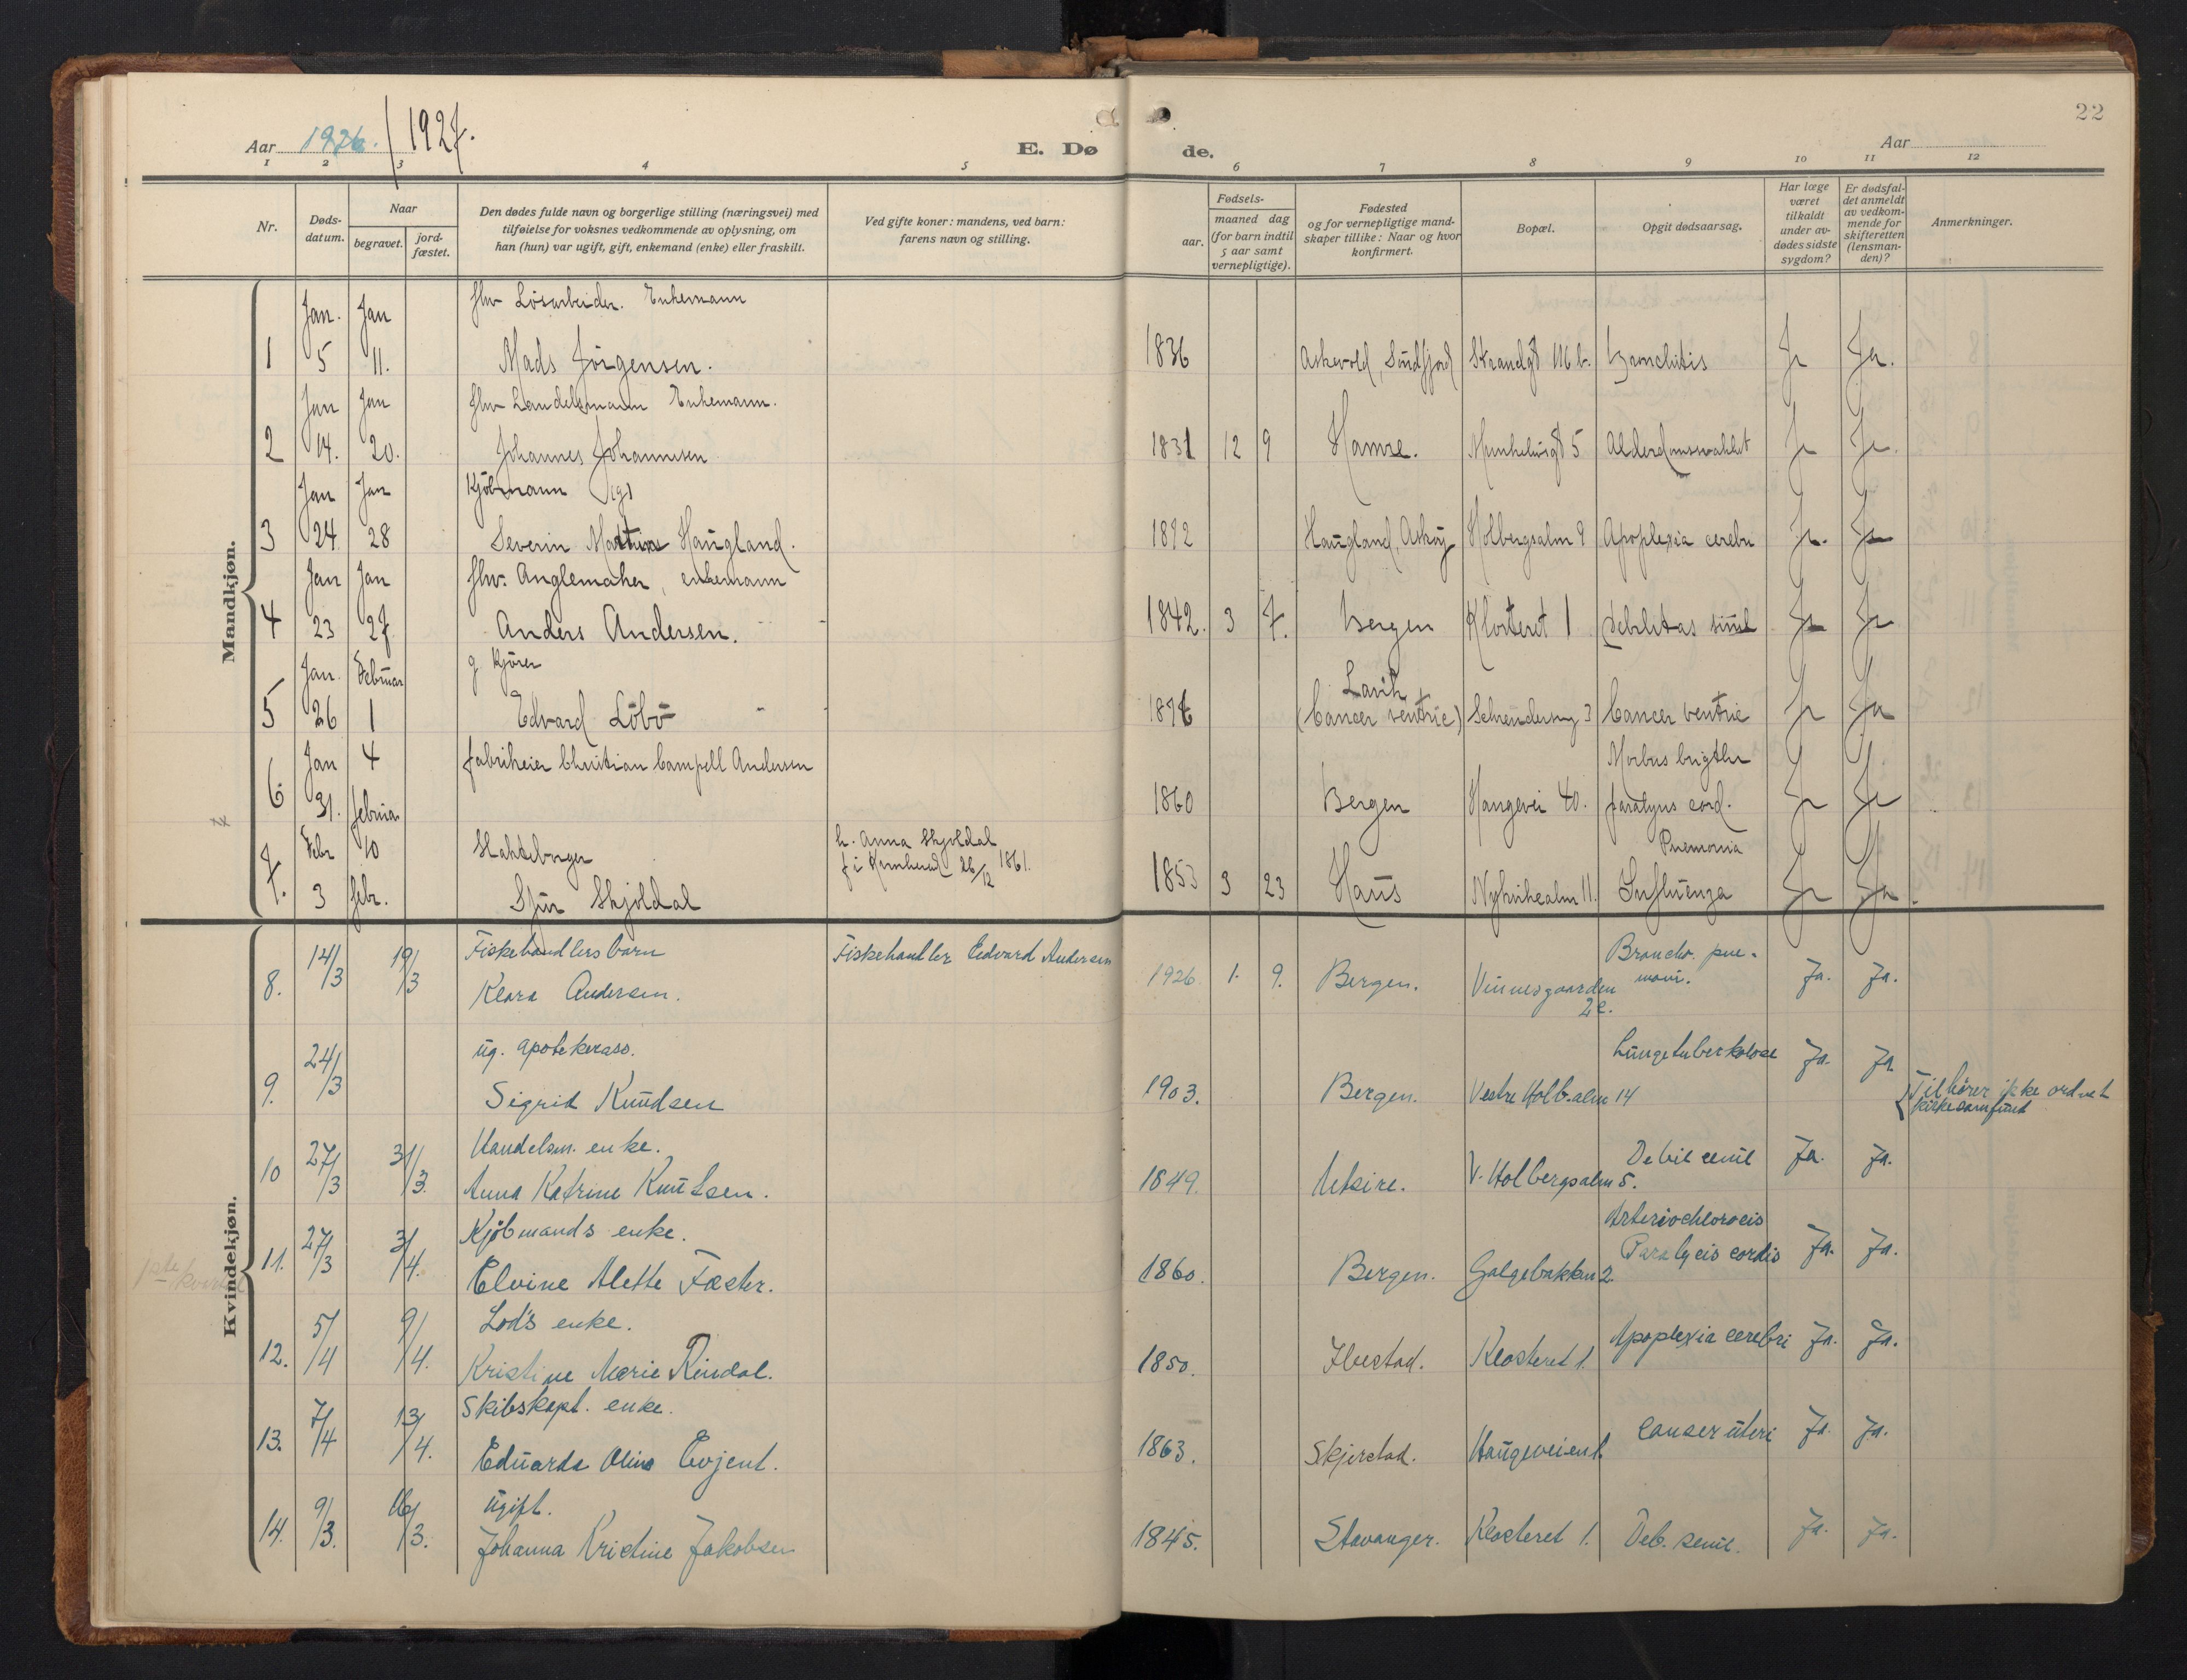 22
Aar 1926. / 1927.
E. Dø de.
Aar
1 2 3 4 5 6 7 8 9 10 11 12
Nr.
Døds-
datum.
Naar
begravet.
jord-
fæstet.
Den dødes fulde navn og borgerlige stilling (næringsvei) med
tilføielse for voksnes vedkommende av oplysning, om
han (hun) var ugift, gift, enkemand (enke) eller fraskilt.
Ved gifte koner: mandens, ved barn:
farens navn og stilling.
Fødsels-
aar.
maaned dag
(for barn indtil
5 aar samt
vernepligtige).
Fødested
og for vernepligtige mand-
skaper tillike: Naar og hvor
konfirmert.
Bopæl.
Opgit dødsaarsag.
Har læge
været
tilkaldt
under av-
dødes sidste
sygdom?
Er dødsfal-
det anmeldt
av vedkom-
mende for
skifteretten
(lensman-
den)?
Anmerkninger.
Mandkjøn.
Jan. Jan fhv Løsarbeider. Enkemann
1 5 11. Mads Jörgensen. 1836 Askevold, Sündfjord Strandgt 116 b. Bronchitis Ja Ja.
Jan Jan fhv Handelsmann Enkemann.
2 14. 20. Johannes Johannesen 1831 12 9 Hamre. 5 Ja Ja
Jan Jan Kjöbmann
3 24 28 Severin Martines Haugland. Haugland, Askøy Holbergsalm 9 Apoplexia cerebri Ja. Ja
Jan Jan fhv. Anglemaker, enkemann
4 23 27 Anders Andersen. 1842. 3 7. Bergen Klosteret 1 Debilitas senil Ja Ja
Jan. Februar g Kjörer
5 26 1 Edvard Löbö Lavik (Cancer ventric) 3 Cancer ventric Ja Ja
Jan 4 fabrikeier Christian Campell Andersen Morbus brigthii
6 31. februar 1860 Bergen Haugevei 40. paralysis cord. Ja Ja
4
Febr 10 h. Anna Skjoldal Pnemonia
f i 26/12 1861.
7. 3 febr. Skjoldal 1853 3 23 Haus Nykirkealm 11. Influenza Ja Ja.
Kvindekjøn.
1ste kvartal
14/3 19/3 Fiskehandlers barn Fiskehandler Eedvard Andersen Broncho. pne-
8. Klara Andersen. 1926 1. 9. Bergen. Vinnesgaarden moni. Ja. Ja.
2c.
24/3 ug. apotekerass. Lungetuberkolose Ja. Ja
9. Sigrid Knudsen 1903. Bergen. Vestre Holb.alm 14 Tilhører ikke ordnet
kirkesamfund
27/3 31/3. Handelsm. enke. Debil cenil Ja. Ja.
10 Anna Katrine Knutsen. 1849. Utsire. V. Holbergsalm 5.
27/3 3/4. Kjöbmands enke. Arteriochlorocis
11. Elvine Alette Fæster. 1860. Bergen. Galgebakken 2. Paralycis cordis Ja. Ja.
5/4 9/4. Lods enke.
12. Kristine Marie Rindal. 1850. Ibestad. Klosteret 1. Apoplexia cerebri Ja. Ja.
7/4 13/4. Skibskapt. enke.
13. Eduarda Oline Evjent. 1863. Skjerstad. Haugeveien 1. Canser uteri Ja. Ja.
9/3. 16/3. Ugift.
14. Johanna Kristine Jakobsen 1845. Stavanger. Klosteret 1. Deb. senil. Ja. Ja.